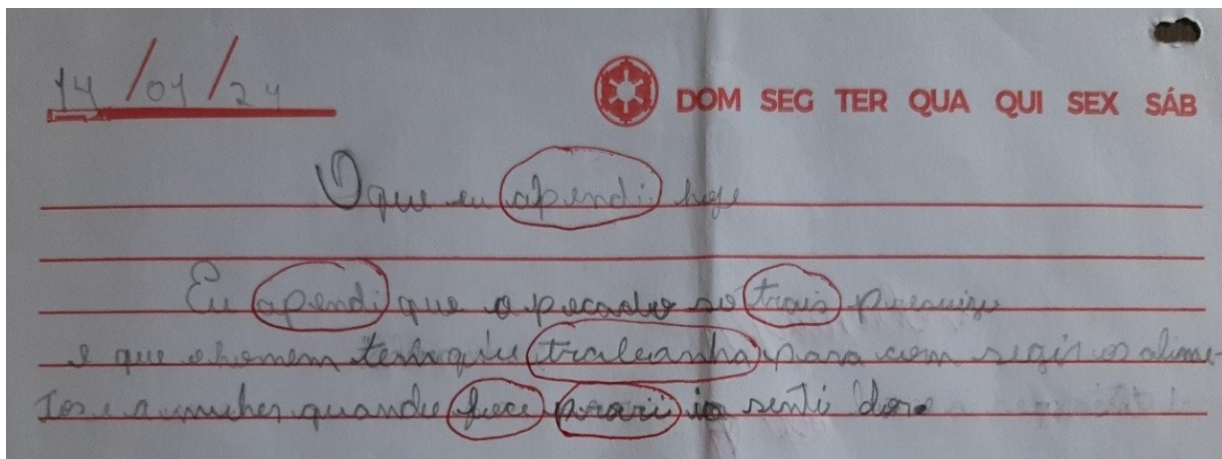 14/01/24
DOM SEG TER QUA QUI SEX SÁB
O que eu apendi hoje
Eu apendi que o pecado so trais
e que o homem tem que para com segir os alime-
tos e a muher quando foce ia senti dor.